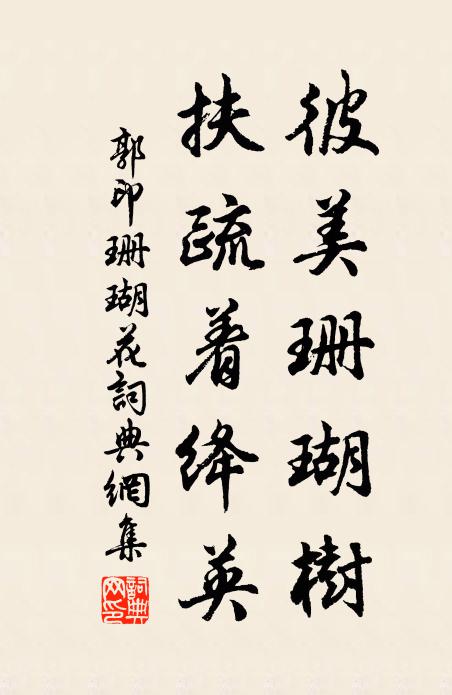 彼美珊瑚樹
扶疏着绛英
郭印珊瑚花詞典網集
詞典網印